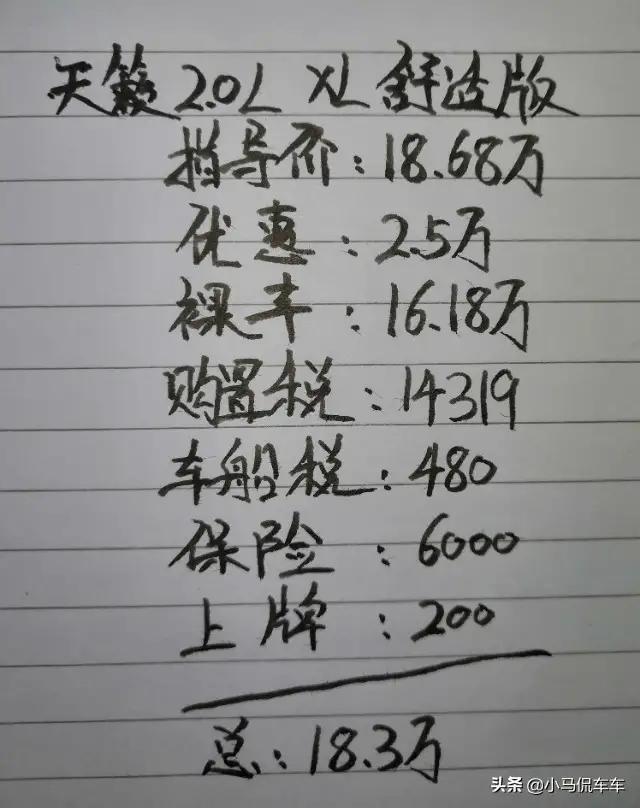 天籁 2.0L XL 舒适版
指导价：18.68万
优惠：2.5万
裸车：16.18万
购置税：14319
车船税：480
保险：6000
上牌：200
总：18.3万
头条 @小马侃车车